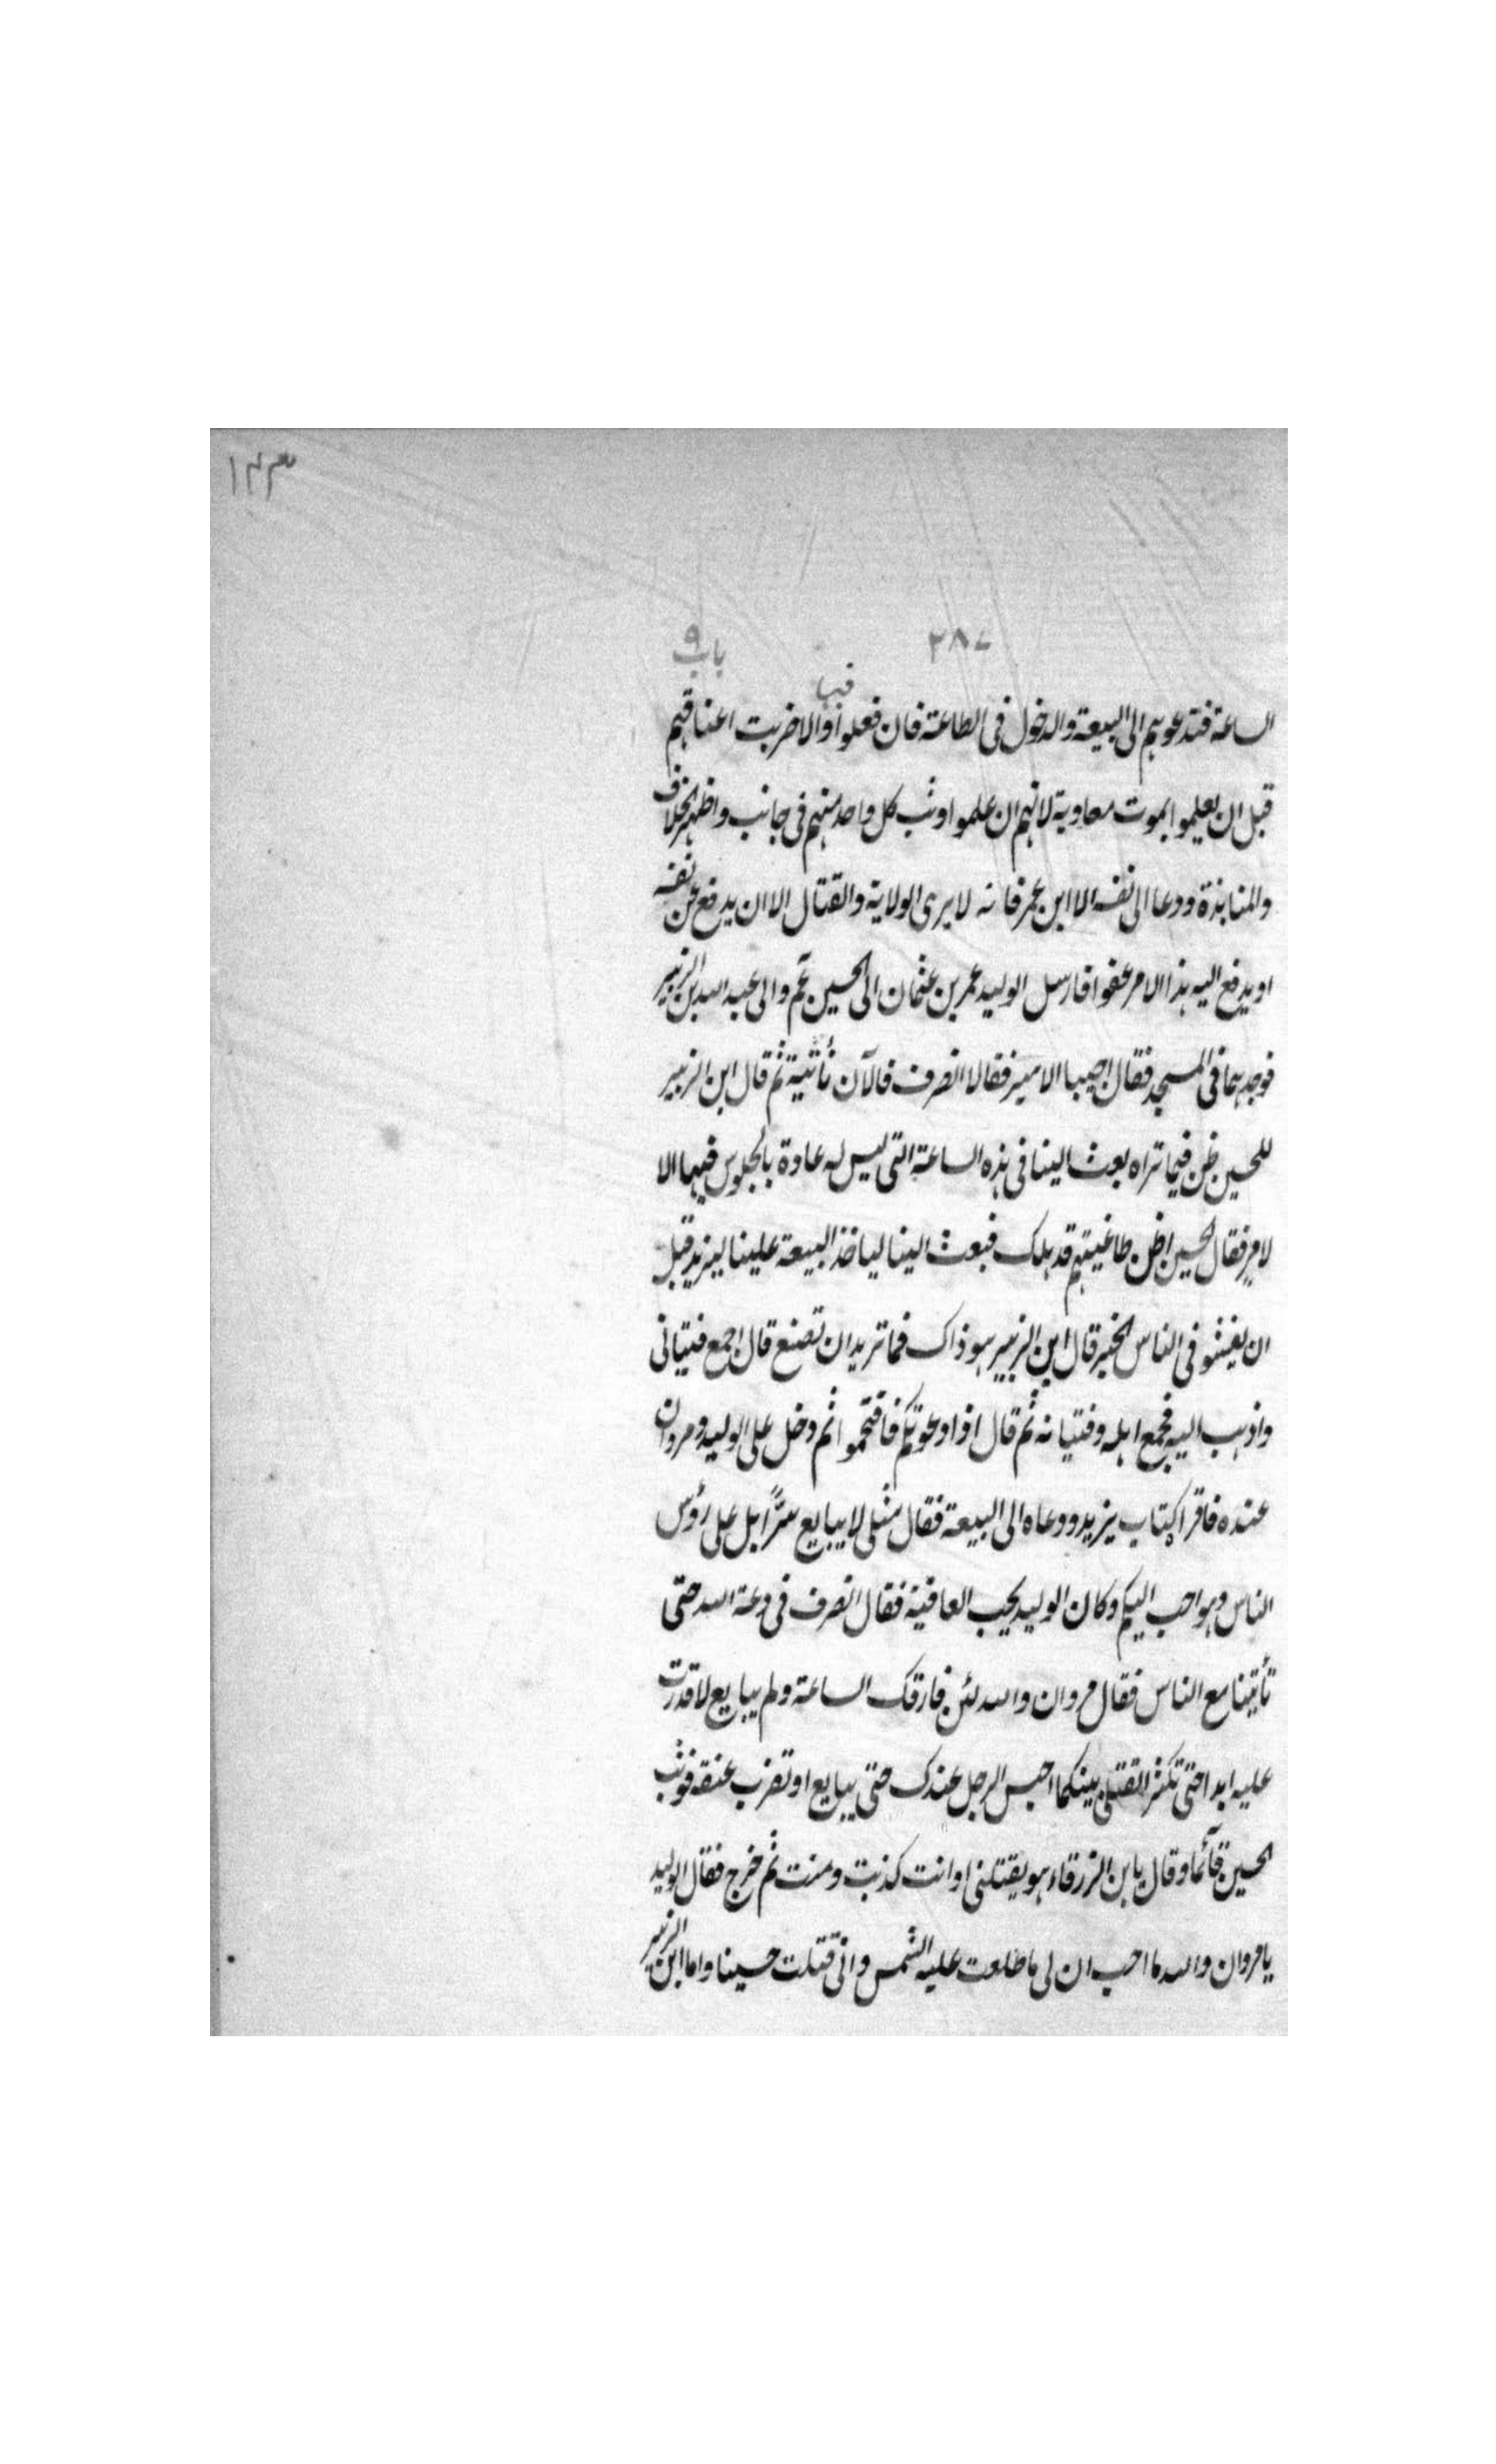 ١٤٣
٣٨٧ باب ٩
فبها
الساعة فتدعوهم الى البيعة والدخول فى الطاعة فان فعلوا والا ضربت اعناقهم
قبل ان يعلموا بموت معاوية لانهم ان علموا وثب كل واحد منهم فى جانب واظهر الخلاف
والمنابذة ودعا الى نفسه الا ابن عمر فانه لا يرى الولاية والقتال الا ان يدفع عن نفسه
او يدفع اليه هذا الامر عفوا فارسل الوليد عمر بن عثمان الى الحسين عم والى عبد الله بن الزبير
فوجدهما فى المسجد فقال اجيبا الامير فقالا انصرف فالآن نأتيه ثم قال ابن الزبير
للحسين ظن فيما تراه بعث الينا فى هذه الساعة التى ليس له عادة بالجلوس فيها الا
لامر فقال الحسين اظن طاغيتهم قد هلك فبعث الينا لياخذ البيعة علينا ليزيد قبل
ان يفشو فى الناس الخبر قال ابن الزبير هو ذاك فما تريد ان تصنع قال اجمع فتيانى
واذهب اليه فجمع اهله وفتيانه ثم قال اذا دعوتكم فاقتحموا ثم دخل على الوليد ومروان
عنده فاقرا كتاب يزيد ودعاه الى البيعة فقال مثلى لا يبايع سرًّا بل على رؤس
الناس وهو احب اليكم وكان الوليد يحب العافية فقال انصرف فى دعة الله حتى
تأتينا مع الناس فقال مروان والله لئن فارقك الساعة ولم يبايع لا قدرت
عليه ابدا حتى تكثر القتلى بينكما احبس الرجل عندك حتى يبايع او تضرب عنقه فوثب
الحسين قآئما وقال يابن الزرقاء هو يقتلنى او انت كذبت ومنت ثم خرج فقال الوليد
يا مروان والله ما احب ان لى ما طلعت عليه الشمس وانى قتلت حسينا واما ابن الزبير